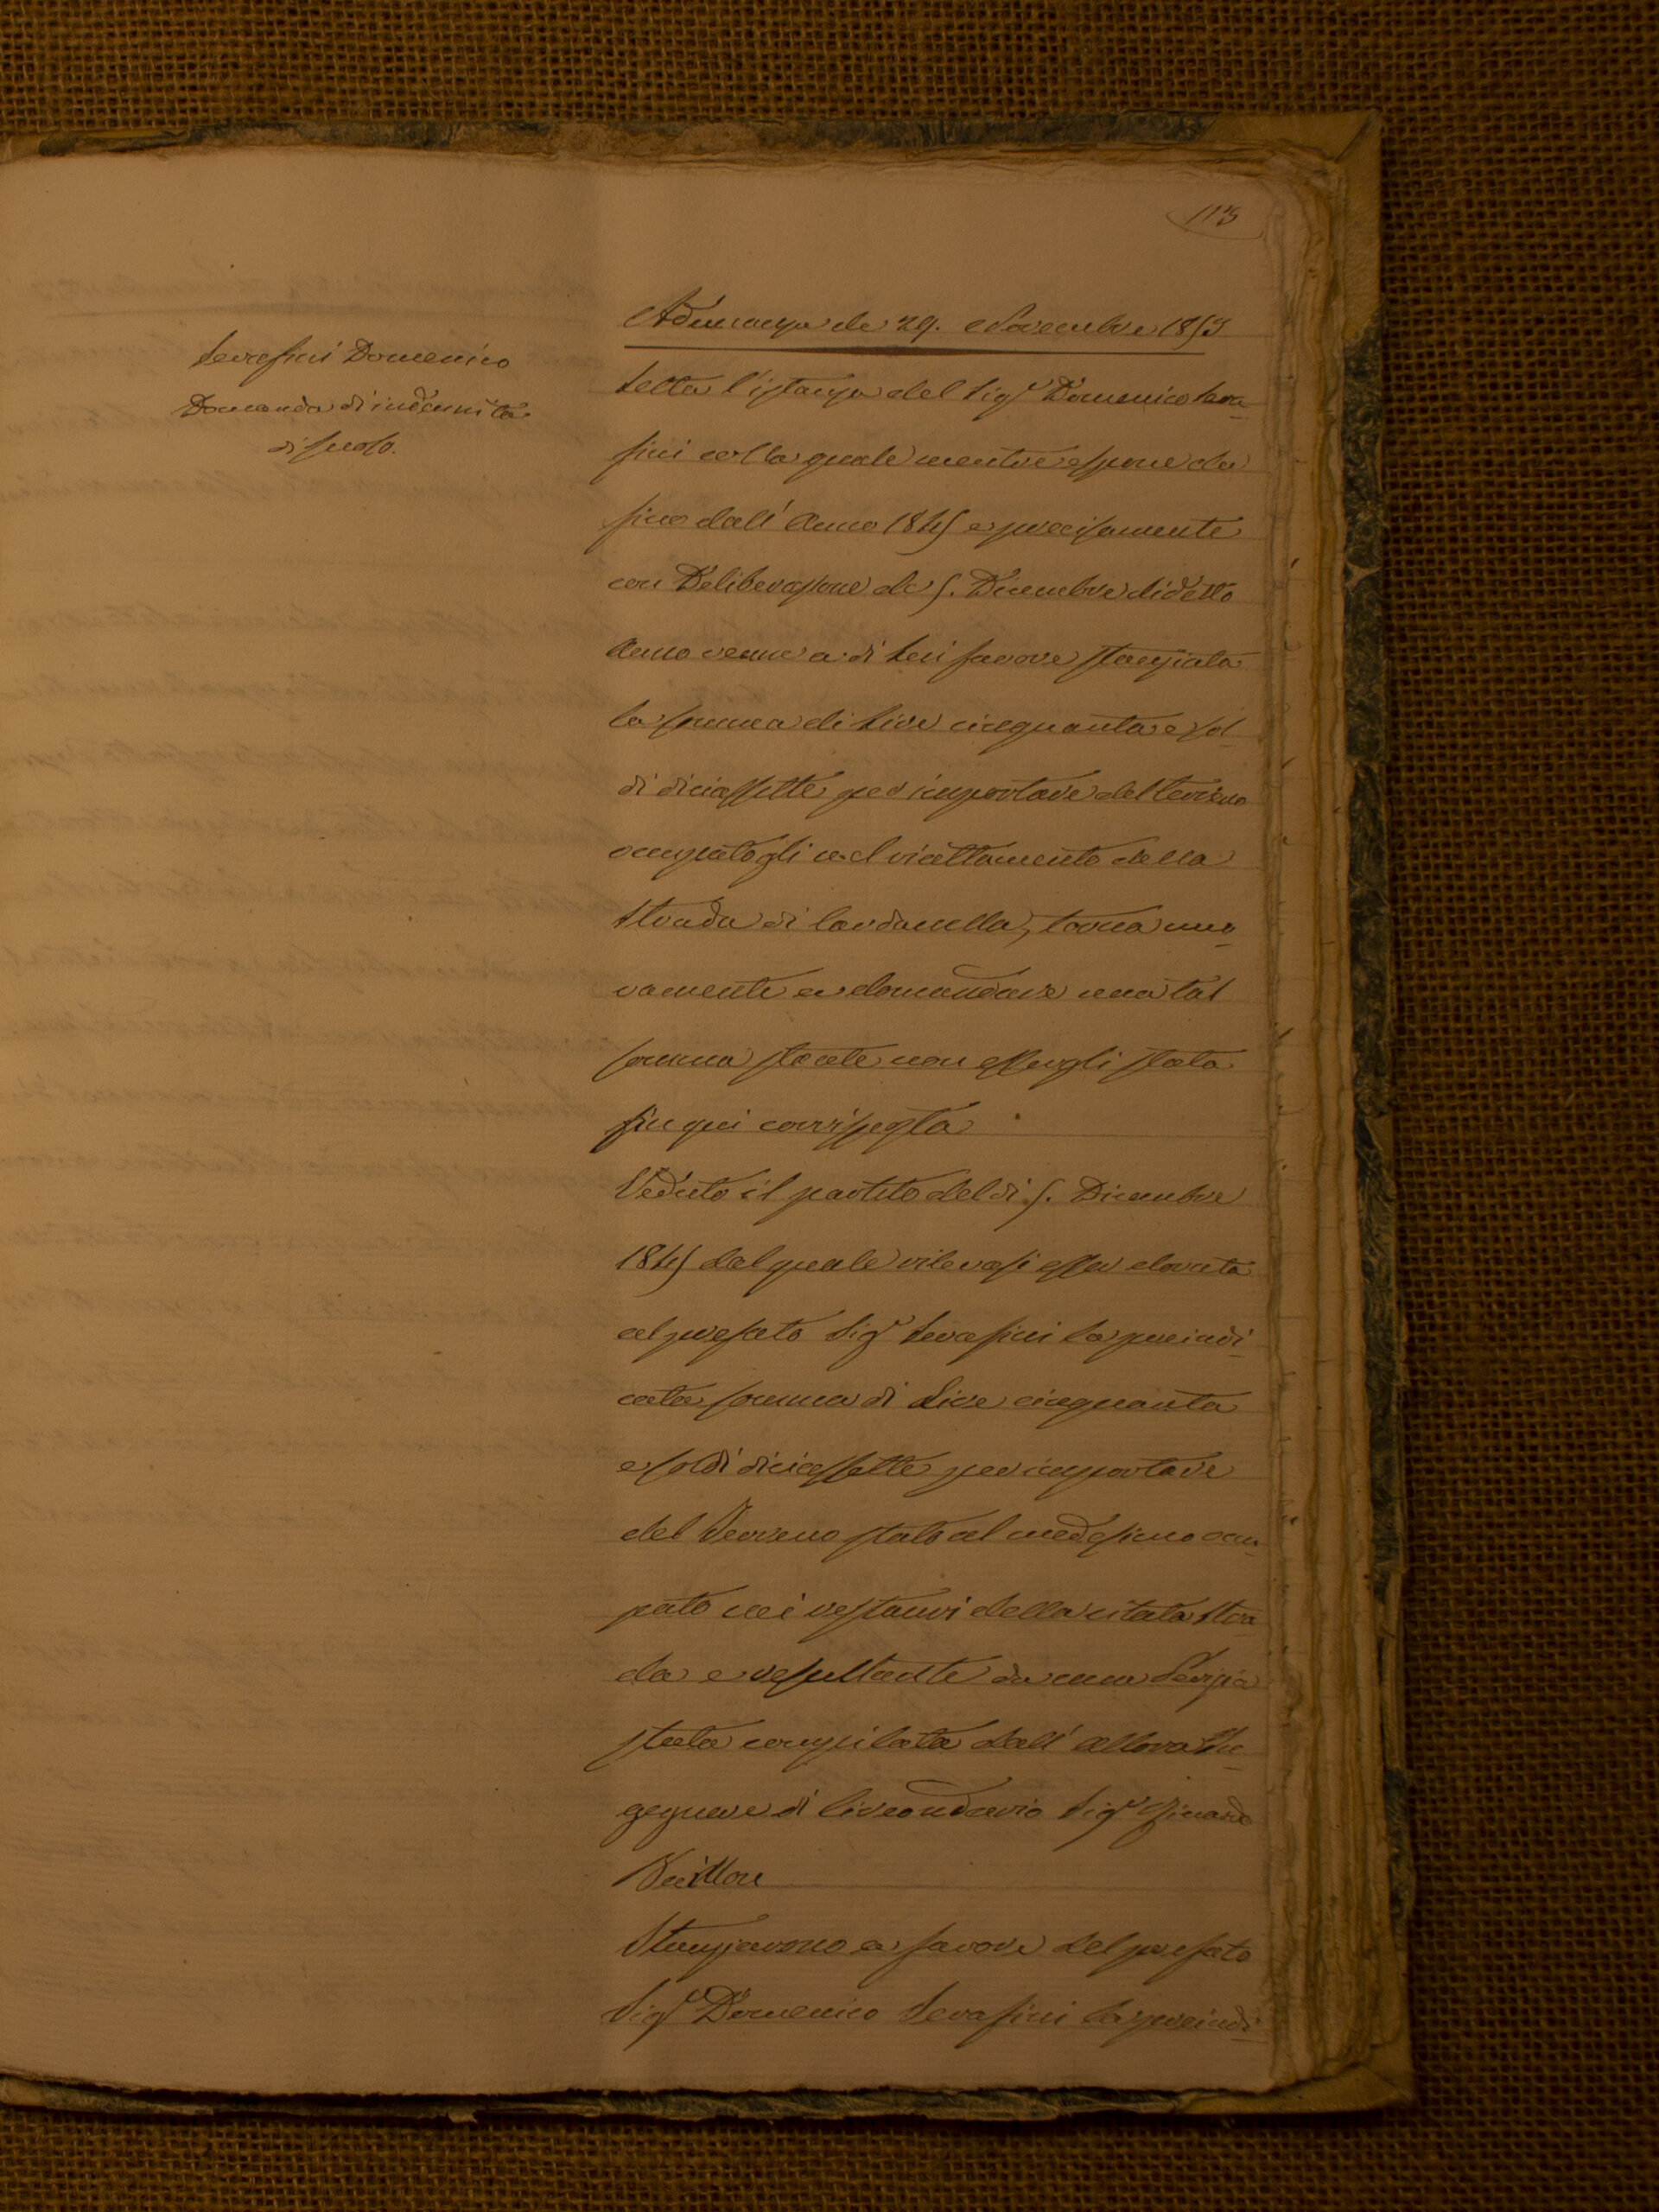 113
Adunanza de 29. Novembre 1853
Serafini Domenico
Domanda di indennità
di suolo.
Letta l'istanza del Sigr Domenico Sera-
fini colla quale mentre espone che
fino dall'Anno 1845 e precisamente
con Deliberazione de 5. Dicembre di detto
Anno venne a di lui favore stanziata
la somma di Lire cinquanta e sol-
di diciassette per importare del terreno
occupatogli nel riattamento della
Strada di Cardanella, torna nuo-
vamente a domandare una tal
somma stante non essergli stata
fin qui corrisposta
Veduto il partito del dì 5. Dicembre
1845 dal quale rilevasi esser dovuta
al prefato Sigr Serafini la preindi-
cata somma di Lire cinquanta
e soldi diciassette per importare
del Terreno stato al medesimo occu-
pato nei restauri della citata Stra-
da e resultante da una Perizia
stata compilata dall'allora In-
gegnere di Circondario Sigr
Stanziarono a favore del prefato
Sigr Domenico Serafini la preindi-